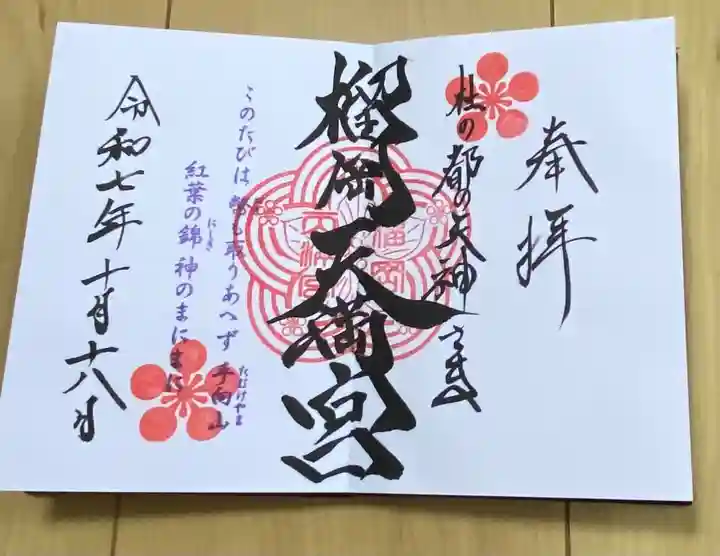 奉拝
杜の都の天神さま
榴岡天満宮
このたびは 幣も取りあへず 手向山
紅葉の錦 神のまにまに
令和七年十月十八日